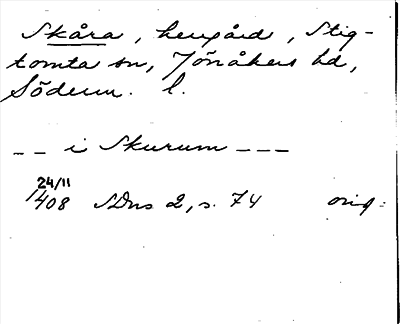 Skåra, herrgård, Stig-
tomta sn, Jönåkers hd,
Söderm. l.
_ _ i Skurum _ _ _
24/11
1408 SDns 2, s. 74 orig.